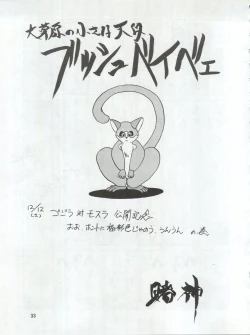 大草原の小さな天使
ブッシュベイベェ
12/12
(土)
ゴジラ対モスラ 公開記念
おお、ホントに極彩色じゃのう、うんうん の巻
賭神
38